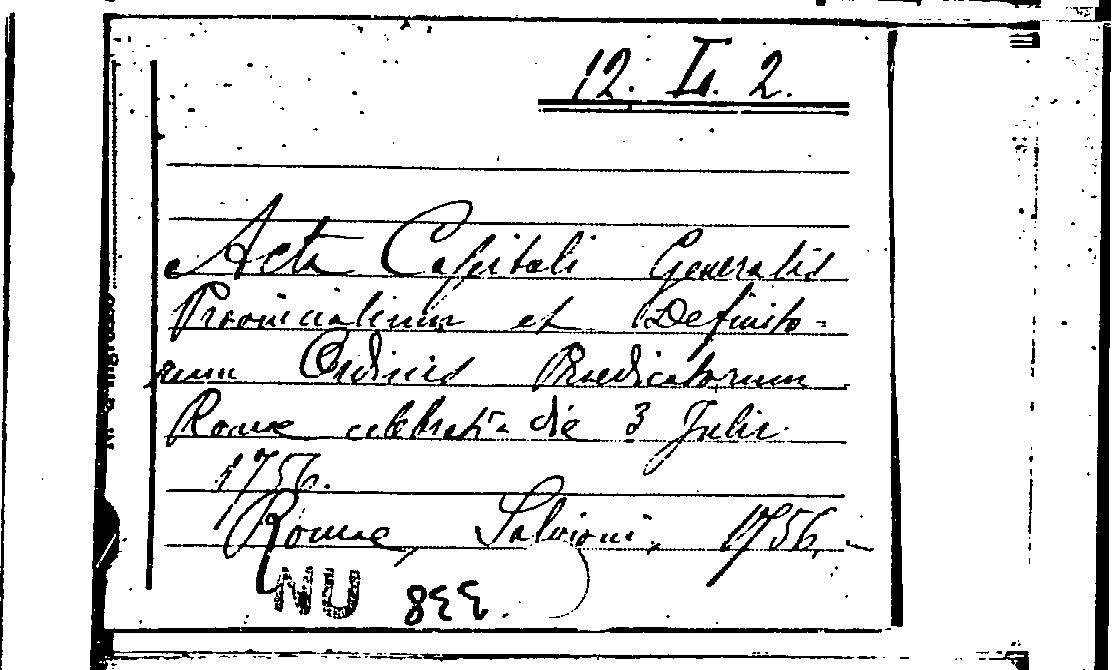 12. L. 2.
Acta Capituli Generalis
Provincialium et Definito-
rum Ordinis Praedicatorum
Romae celebrati die 3 Julii
1756.
Romae, Salvioni, 1756.
NU